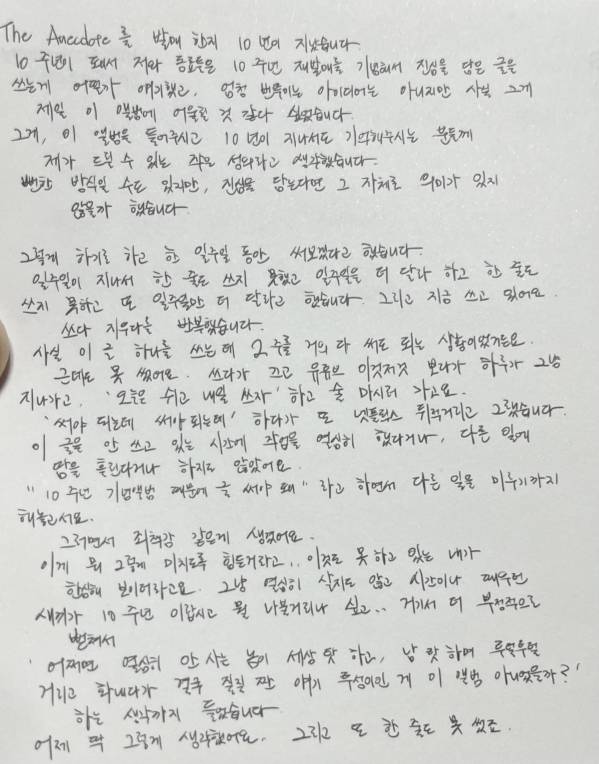 The Anecdote를 발매 한지 10년이 지났습니다.
10주년이 돼서 저와 동료들은 10주년 재발매를 기념해서 진심을 담은 글을
쓰는게 어떨까 얘기했고, 엄청 번뜩이는 아이디어는 아니지만 사실 그게
제일 이 앨범에 어울릴 것 같다 싶었습니다.
그게, 이 앨범을 들어주시고 10년이 지나서도 기억해주시는 분들께
제가 드릴 수 있는 작은 성의라고 생각했습니다.
뻔한 방식일 수도 있지만, 진심을 담는다면 그 자체로 의미가 있지
않을까 했습니다.
그렇게 하기로 하고 한 일주일 동안 써보겠다고 했습니다.
일주일이 지나서 한 줄도 쓰지 못했고 일주일을 더 달라 하고 한 줄도
쓰지 못하고 또 일주일만 더 달라고 했습니다. 그리고 지금 쓰고 있어요.
쓰다 지우다를 반복했습니다.
사실 이 글 하나를 쓰는데 2주를 거의 다 써도 되는 상황이었거든요.
근데도 못 썼어요. 쓰다가 끄고 유튜브 이것저것 보다가 하루가 그냥
지나가고, '오늘은 쉬고 내일 쓰자' 하고 술 마시러 가고요.
'써야 되는데 써야 되는데' 하다가 또 넷플릭스 뒤적거리고 그랬습니다.
이 글을 안 쓰고 있는 시간에 작업을 열심히 했다거나, 다른 일에
땀을 흘린다거나 하지도 않았어요.
"10주년 기념앨범 때문에 글 써야 돼" 라고 하면서 다른 일을 미루기까지
해놓고서요.
그러면서 죄책감 같은게 생겼어요.
이게 뭐 그렇게 미치도록 힘든거라고.. 이것도 못 하고 있는 내가
한심해 보이더라고요. 그냥 열심히 살지도 않고 시간이나 때우던
새끼가 10주년 이랍시고 뭘 나불거리나 싶고.. 거기서 더 부정적으로
뻗쳐서
'어쩌면 열심히 안 사는 놈이 세상 탓 하고, 남 탓 하며 투덜투덜
거리고 화내다가 결국 질질 짠 얘기 투성이인 게 이 앨범 아니었을까?'
하는 생각까지 들었습니다.
어제 딱 그렇게 생각했어요. 그리고 또 한 줄도 못 썼죠.